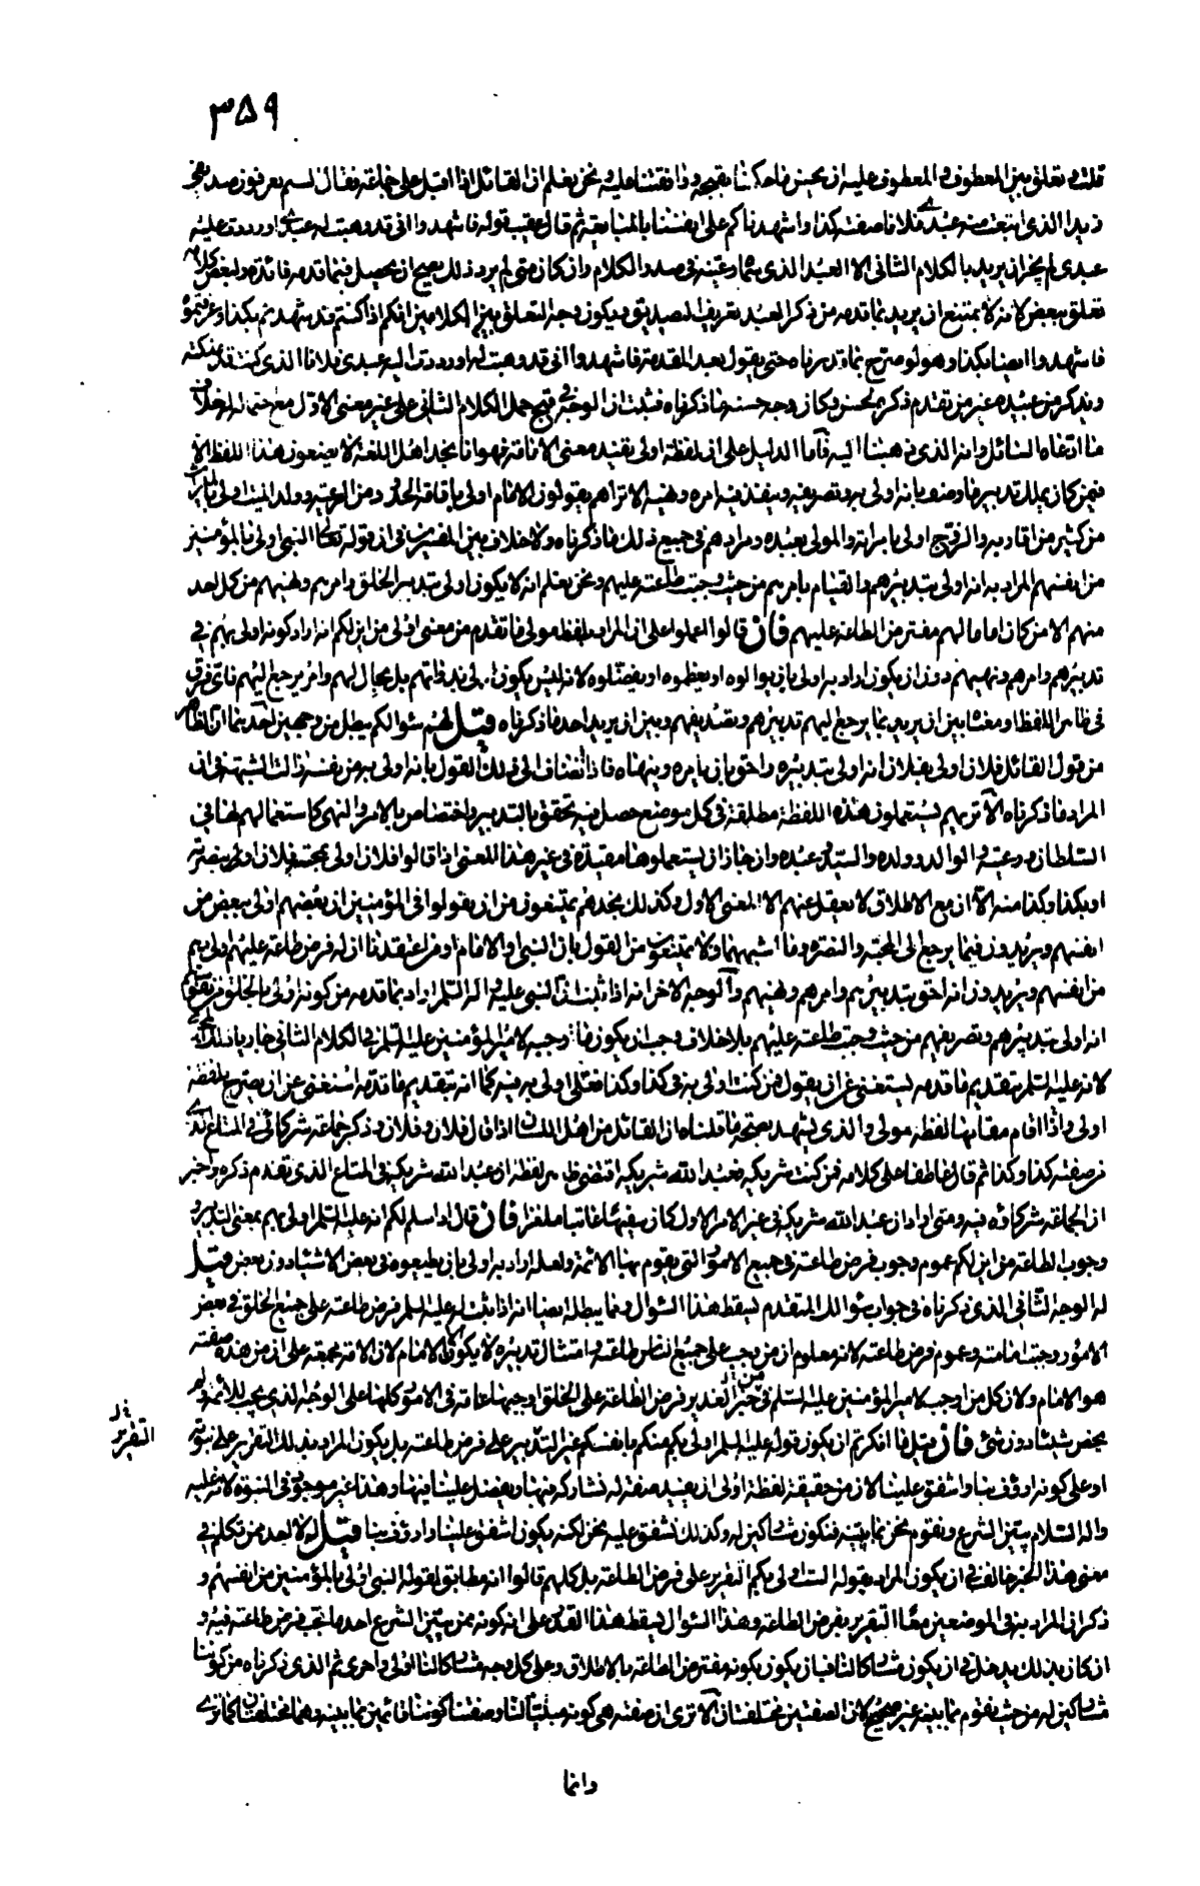 ٣۵٩
قلت وتعلق بين المعطوف والمعطوف عليه لم يحسن ما حكمنا بقبحه ووافقتنا عليه ونحن نعلم ان القائل اذا اقبل على جماعة فقال لستم تعرفون صديقي
زيدا الذي ابتعت منه عبدي فلانا صفته كذا واشهدناكم على انفسنا بالمبايعة ثم قال عقيب قوله فاشهدوا اني قد وهبت له عبدي او رددت عليه
عبدي لم يجز ان يريد بالكلام الثاني الا العبد الذي سماه وعينه في صدر الكلام وان كان متى لم يرد ذلك يصح ان يحصل فيما قدمه فائدة ولبعض كلامه
تعلق ببعض لانه لا يمتنع ان يريد بما قدمه من ذكر العبد تعريف الصديق ويكون وجه التعلق بين الكلامين انكم اذا كنتم قد شهدتم بكذا وعرفتموه
فاشهدوا ايضا بكذا وهو لو صرح بما قدرناه حتى يقول بعد المقدمة فاشهدوا اني قد وهبت له او رددت اليه عبدي فلانا الذي كنت قد ملكته
ويذكر من عبيده غير من تقدم ذكره لحسن وكان وجه حسنه ما ذكرناه فثبت ان الوجه في قبح حمل الكلام الثاني على غير معنى الاول مع احتماله له خلاف
ما ادعاه السائل وانه الذي ذهبنا اليه فاما الدليل على ان لفظة اولى يفيد معنى الامامة فهو انا نجد اهل اللغة لا يضعون هذا اللفظ الا
فيمن كان يملك تدبير ما وصف بانه اولى به وتصريفه وينفذ فيه امره ونهيه الا تراهم يقولون الامام اولى باقامة الحدود من الرعية وولد الميت اولى بالميراث
من كثير من اقاربه والزوج اولى بامرأته والمولى بعبده ومرادهم في جميع ذلك ما ذكرناه ولا خلاف بين المفسرين في ان قوله تعالى النبي اولى بالمؤمنين
من انفسهم المراد به انه اولى بتدبيرهم والقيام بامرهم من حيث وجبت طاعته عليهم ونحن نعلم انه لا يكون اولى بتدبير الخلق وامرهم ونهيهم من كل احد
منهم الا من كان اماما لهم مفترض الطاعة عليهم فان قالوا اعملوا على ان المراد بلفظة مولى ما تقدم من معنى اولى من اين لكم انه اراد كونه اولى بهم في
تدبيرهم وامرهم ونهيهم دون ان يكون اراد به اولى بان يوالوه او يعظموه او يفضلوه لانه ليس يكون اولى بذواتهم بل بحال لهم وامر يرجع اليهم فاي فرق
في ظاهر اللفظ او معناه بين ان يريد بما يرجع اليهم تدبيرهم وتصريفهم وبين ان يريد احد ما ذكرناه قيل لهم سؤالكم يبطل من وجهين احدهما ان الظاهر
من قول القائل فلان اولى بفلان انه اولى بتدبيره واحق بان يامره وينهاه فاذا انضاف الى ذلك القول بانه اولى به من نفسه زالت الشبهة في ان
المراد ما ذكرناه الا تريهم يستعملون هذه اللفظة مطلقة في كل موضع حصل فيه تحقق بالتدبير واختصاص بالامر والنهي كاستعمالهم لها في
السلطان ورعيته والوالد وولده والسيد وعبده وان جاز ان يستعملوها مقيدة في غير هذا المعنى اذا قالوا فلان اولى بمحبة فلان او بنصرته
او بكذا وكذا منه الا ان مع الاطلاق لا يعقل عنهم الا المعنى الاول وكذلك نجدهم يمتنعون من ان يقولوا في المؤمنين ان بعضهم اولى ببعض من
انفسهم ويريدون فيما يرجع الى المحبة والنصرة وما اشبههما ولا يمتنعون من القول بان النبي او الامام او من اعتقدنا ان له فرض طاعة عليهم اولى بهم
من انفسهم ويريدون انه احق بتدبيرهم وامرهم ونهيهم والوجه الاخر انه اذا ثبت ان النبي عليه واله السلم اراد بما قدمه من كونه اولى بالخلق من نفوسهم
انه اولى بتدبيرهم وتصريفهم من حيث وجبت طاعته عليهم بلا خلاف وجب ان يكون ما اوجبه لامير المؤمنين عليه السلم في الكلام الثاني جاريا ذلك المجرى
لانه عليه السلم بتقديم ما قدمه يستغنى عن ان يقول فمن كنت اولى به في كذا وكذا فعلي اولى به فيه كما انه بتقديم ما قدمه استغنى عن ان يصرح بلفظة
اولى واذا اقام مقامها لفظة مولى والذي يشهد بصحة ما قلناه ان القائل من اهل اللسان اذا قال فلان وفلان وذكر جماعة شركائي في المتاع الذي
من صفته كذا وكذا ثم قال عاطفا على كلامه فمن كنت شريكه فعبد الله شريكه اقتضى ظاهر لفظه ان عبد الله شريكه في المتاع الذي تقدم ذكره واخبر
ان الجماعة شركاؤه فيه ومتى اراد ان عبد الله شريكه في غير الامر الاول كان سفيها عابثا ملغزا فان قال اذا سلم لكم انه عليه السلم اولى بهم بمعنى التدبير و
وجوب الطاعة من اين لكم عموم وجوب فرض طاعته في جميع الامور التي يقوم بها الائمة ولعله اراد به اولى بان يطيعوه في بعض الاشياء دون بعض قيل
له الوجه الثاني الذي ذكرناه في جواب سؤالك المتقدم يسقط هذا السؤال ومما يبطله ايضا انه اذا ثبت له عليه السلم فرض طاعته على جميع الخلق في بعض
الامور وجبت امامته وعموم فرض طاعته لانه معلوم ان من يجب على جميع الناس طاعته وامتثال تدبيره لا يكون الا الامام لان الامة مجمعة على ان من هذه صفته
هو الامام ولان كل من اوجب لامير المؤمنين عليه السلم من خبر الغدير فرض الطاعة على الخلق اوجبها عامة في الامور كلها على الوجه الذي يجب للائمة ولم
يخص شيئا دون شيء فان قيل ما انكرتم ان يكون قوله عليه السلم اولى بكم منكم بانفسكم غير التدبير على فرض طاعته بل يكون المراد بذلك التقرير على نبوته
او على كونه ارؤف بنا واشفق علينا لان من حقيقة لفظة اولى ان يفيد صفة له نشاركه فيها ويفضل علينا فيها وهذا غير موجود في النبوة لانه عليه
واله السلام يبين الشرع ونقوم نحن بما يبينه فنكون مشاركين له وكذلك نشفق عليه نحن لكنه يكون اشفق علينا وارؤف بنا قيل له لا احد ممن تكلم في
معنى هذا الخبر خالف في ان يكون المراد بقوله الست اولى بكم التقرير على فرض الطاعة بل كلهم قالوا انه مطابق لقوله النبي اولى بالمؤمنين من انفسهم و
ذكر ان المراد به في الموضعين معا التقرير بفرض الطاعة وهذا السؤال يسقط هذا القدر على ان كونه ممن يبين الشرع احد ما تجب فرض طاعته فيه و
ان كان بذلك يدخل في ان يكون مشاركا لنا فبان يكون بكونه مفترض الطاعة بالاطلاق وعلى كل وجه مشاركا لنا اولى واحرى ثم الذي ذكرناه من كوننا
مشاركين له من حيث يقوم بما بينه غير صحيح لان الصفتين مختلفتان الا ترى ان صفته هي كونه مبينا لنا وصفتنا كوننا قائمين بما بينه وهما مختلفتان كما ترى
التقرير
وانما